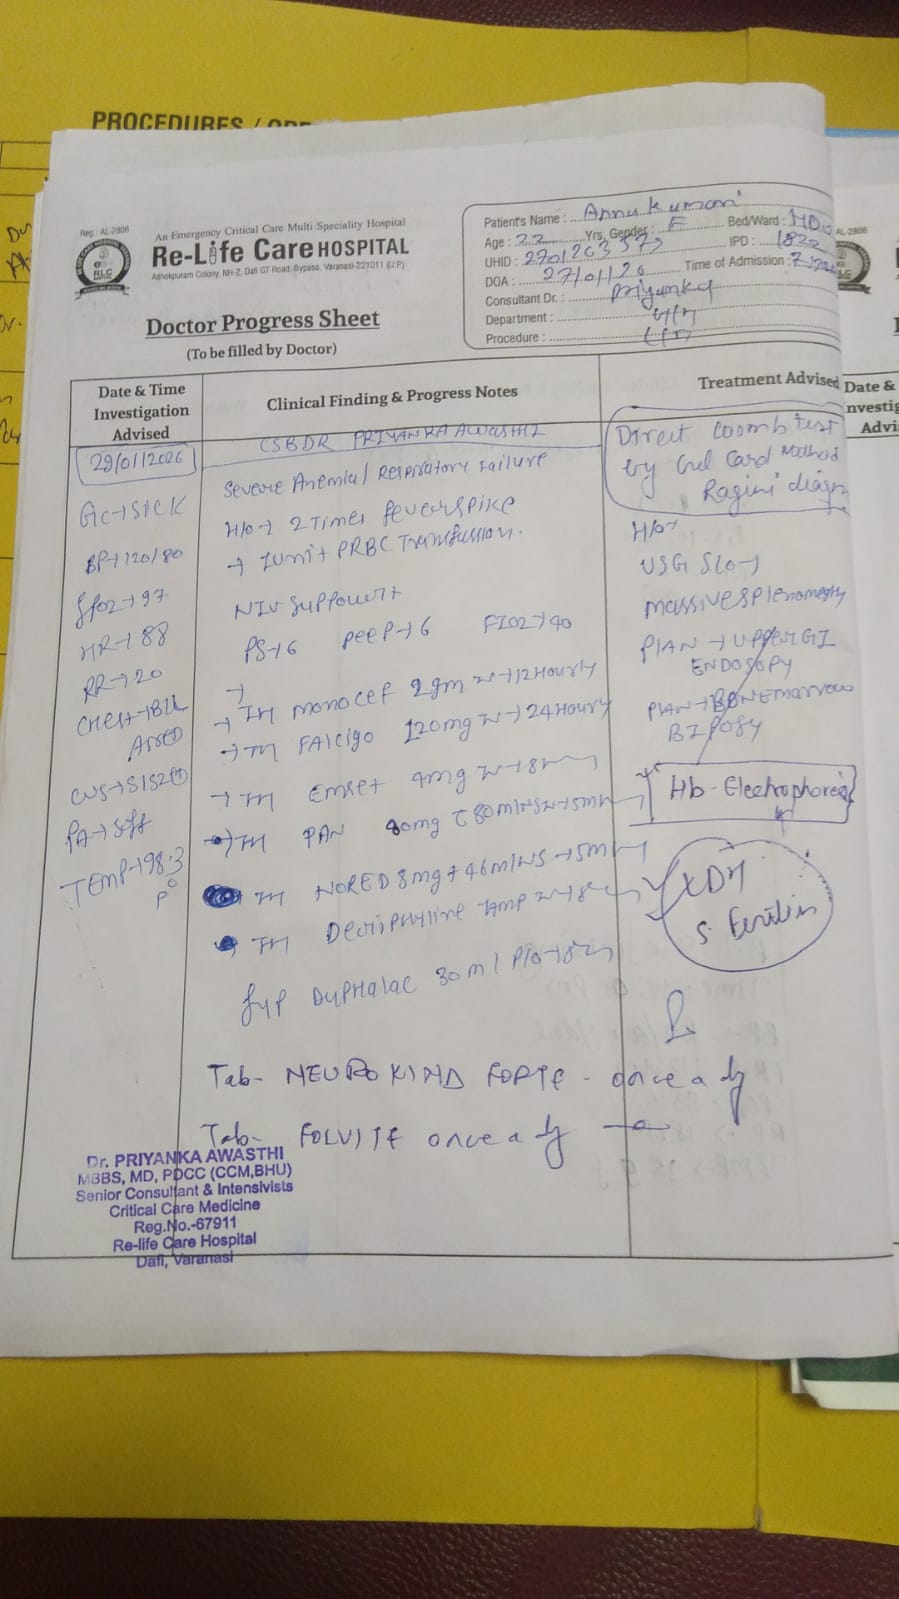 PROCEDURES /
Reg.: AL-2806
An Emergency Critical Care Multi Speciality Hospital
Re-Life Care HOSPITAL
Ashokpuram Colony, NH-2, Dafi GT Road, Bypass, Varanasi-221011 (U.P.)
RLC
Doctor Progress Sheet
(To be filled by Doctor)
Patient's Name : Annu Kumari
Age : 22 Yrs, Gender : F Bed/Ward : HD
UHID : IPD : 1822
DOA : 27/01/26 Time of Admission :
Consultant Dr. : Priyanka
Department :
Procedure :
AL-2806
Date & Time
Investigation
Advised
Clinical Finding & Progress Notes
Treatment Advised
Date &
nvestig
Advi
29/01/2026
GC→SICK
BP→120/80
SPO2→97
HR→88
RR→20
Chest→B/L
CVS→S1S2⊕
PA→Soft
TEMP→98.3
F°
CSBDR PRIYANKA AWASTHI
Severe Anemia / Respiratory Failure
H/o→ 2 Times fever spike
→ 1unit PRBC Transfusion.
NIV Support
PS→6 PEEP→6 FIO2→40
→
→ Inj monocef 2gm IV→12Hourly
→ Inj FAlcigo 120mg IV→24Houry
→ Inj Emset 4mg IV→8
→ Inj PAN
Inj NORED 8mg +
Inj Deriphyline 1Amp IV→8
Syp DUPHalac 30ml P/o→8
Tab- NEUROKIND FORTE - once a dy
Tab- FOLVITE once a dy
Direct Coomb test
by Gel Card Method
Ragini
H/o→
USG S/o→
massive splenomegaly
PlAN → UPPER GI
ENDOSOPY
PlAN → BONEmarrow
BIPOSY
Hb-Electrophoresis
LDH
S. Ferritin
Dr. PRIYANKA AWASTHI
MBBS, MD, PDCC (CCM,BHU)
Senior Consultant & Intensivists
Critical Care Medicine
Reg.No.-67911
Re-life Care Hospital
Dafi, Varanasi